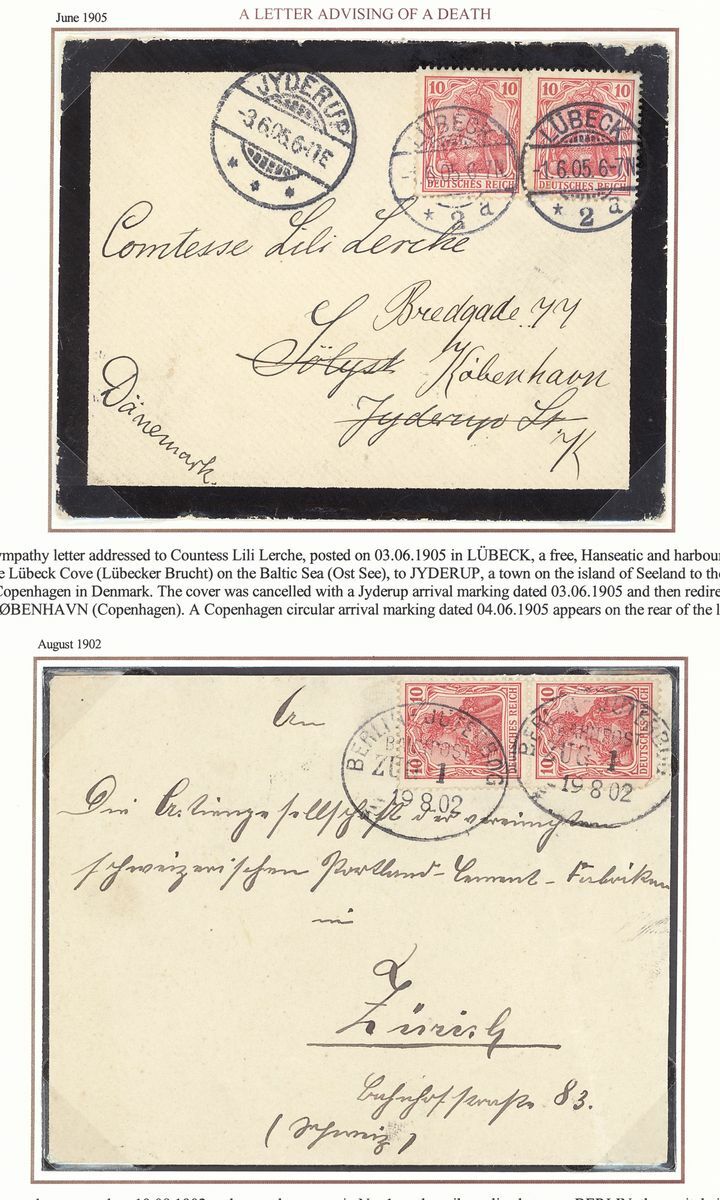 June 1905
A LETTER ADVISING OF A DEATH
JYDERUP
-3.6.05.6-7E
10 10 10 10
DEUTSCHES REICH
DEUTSCHES REICH
LÜBECK
6.05.6
* 2 a
LÜBECK
-1.6.05.6-7N
* 2 a
Comtesse Lili Lerche
Bredgade 77
Sölyst København
Jyderup St K
Dänemark.
ympathy letter addressed to Countess Lili Lerche, posted on 03.06.1905 in LÜBECK, a free, Hanseatic and harbour
e Lübeck Cove (Lübecker Brucht) on the Baltic Sea (Ost See), to JYDERUP, a town on the island of Seeland to the
Copenhagen in Denmark. The cover was cancelled with a Jyderup arrival marking dated 03.06.1905 and then redire
ØBENHAVN (Copenhagen). A Copenhagen circular arrival marking dated 04.06.1905 appears on the rear of the l
August 1902
10 10 DEUTSCHES REICH
10 10 DEUTSCHES REICH
BERLIN JÜTERBOG
BAHNPOST
ZUG 1
19 8 02
BERLIN JÜTERBOG
BAHNPOST
ZUG 1
19 8 02
An
Die Actiengesellschaft der vereinigten
schweizerischen Portland-Cement-Fabriken
in
Zürich
Bahnhofstraße 83.
(Schweiz)